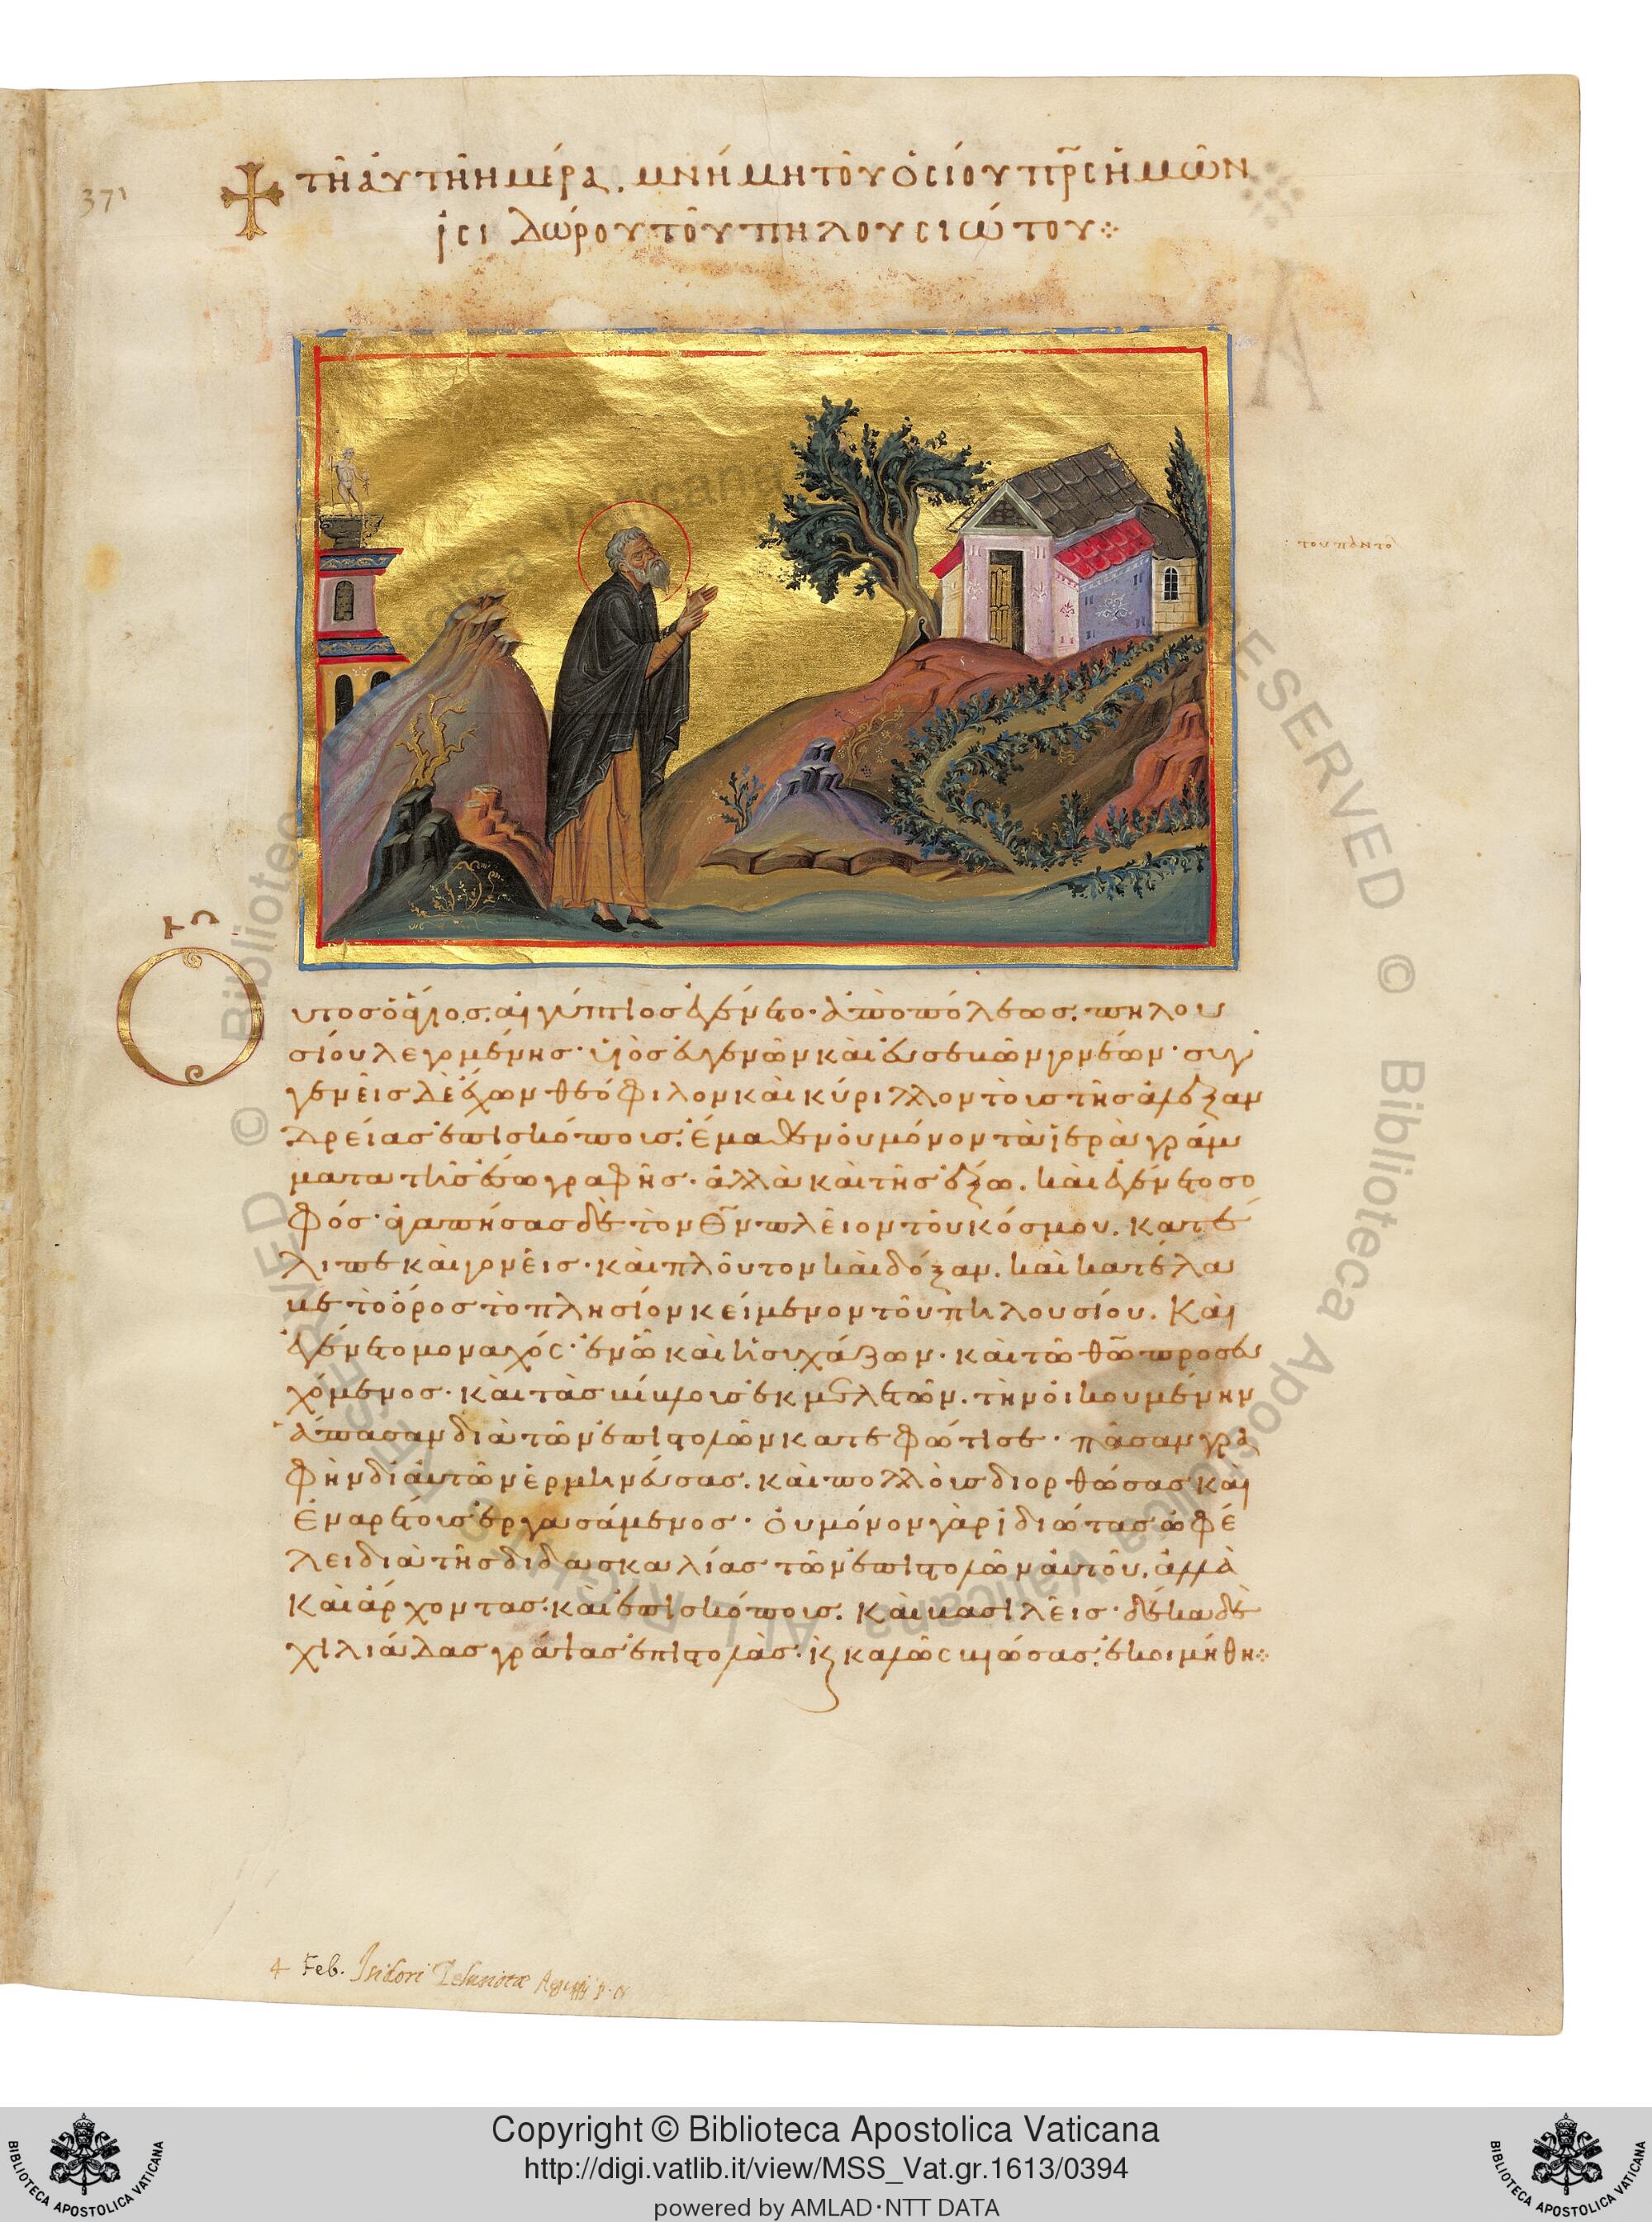 371
τῆ αὐτῆ ἡμέρα. μνήμη τοῦ ὁσίου πρ̅ς ἡμῶν
ἰσιδώρου τοῦ πηλουσιώτου
Ουτος ὁ ἅγιος. αἰγύπτιος ἐγένετο· ἀπὸ πόλεως. πηλου
σίου λεγομένης· υἱὸς εὐγενῶν καὶ εὐσεβῶν γονέων· συγ
γενεῖς δὲ ἔχων θεόφιλον καὶ κύριλλον τοὺς τῆς ἀλεξαν
δρείας ἐπισκόπους. ἔμαθεν οὐ μόνον τὰ ἱερὰ γράμ
ματα τῆς ἔσω γραφῆς· ἀλλὰ καὶ τῆς ἔξω. καὶ ἐγένετο σο
φός· ἀγαπήσας δὲ τὸν θ̅ν πλεῖον τοῦ κόσμου. κατέ
λιπε καὶ γονεῖς· καὶ πλοῦτον καὶ δόξαν. καὶ κατέλα
βε τὸ ὄρος τὸ πλησίον κείμενον τοῦ πηλουσίου. Καὶ
ἐγένετο μοναχός· ἐν ᾧ καὶ ἡσυχάζων· καὶ τῶ θ̅ω προσευ
χόμενος· καὶ τὰς βίβλους ἐκμελετῶν. τὴν οἰκουμένην
ἅπασαν διὰ τῶν ἐπιστολῶν κατεφώτισε· πᾶσαν γρα
φὴν δι' αὐτῶν ἑρμηνεύσας. καὶ πολλοὺς διορθώσας καὶ
ἐναρέτους ἐργασάμενος· οὐ μόνον γὰρ ἰδιώτας ὠφέ
λει διὰ τῆς διδασκαλίας τῶν ἐπιστολῶν αὐτοῦ. ἀλλὰ
Καὶ ἄρχοντας· καὶ ἐπισκόπους. Καὶ βασιλεῖς· δέκα δὲ
χιλιάδας γράψας ἐπιστολὰς· κ̀ καλῶς βιώσας. ἐκοιμήθη
4 Feb. Isidori Pelusiotae
Copyright © Biblioteca Apostolica Vaticana
http://digi.vatlib.it/view/MSS_Vat.gr.1613/0394
powered by AMLAD·NTT DATA
BIBLIOTECA APOSTOLICA VATICANA
BIBLIOTECA APOSTOLICA VATICANA